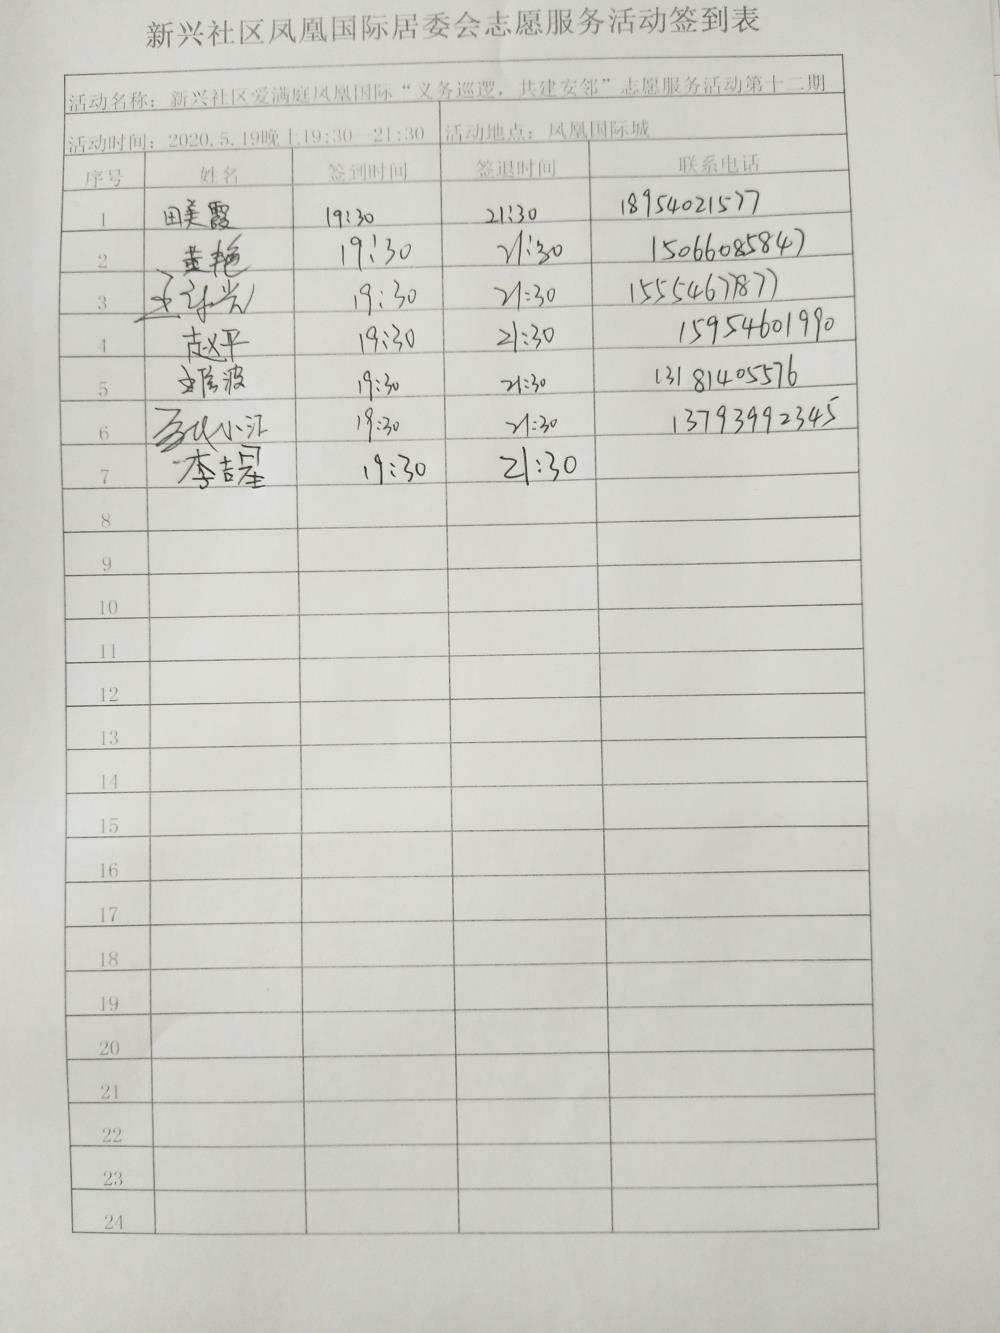 新兴社区凤凰国际居委会志愿服务活动签到表
活动名称：新兴社区爱满庭凤凰国际“义务巡逻，共建安邻”志愿服务活动第十二期
活动时间：2020.5.19晚上19:30—21:30 活动地点：凤凰国际城
序号 姓名 签到时间 签退时间 联系电话
1 田美霞 19:30 21:30 18954021577
2 黄艳 19:30 21:30 15066085847
3 19:30 21:30 15554677877
4 赵平 19:30 21:30 15954601990
5 波 19:30 21:30 13181405576
6 小汇 19:30 21:30 13793992345
7 李吉星 19:30 21:30
8
9
10
11
12
13
14
15
16
17
18
19
20
21
22
23
24